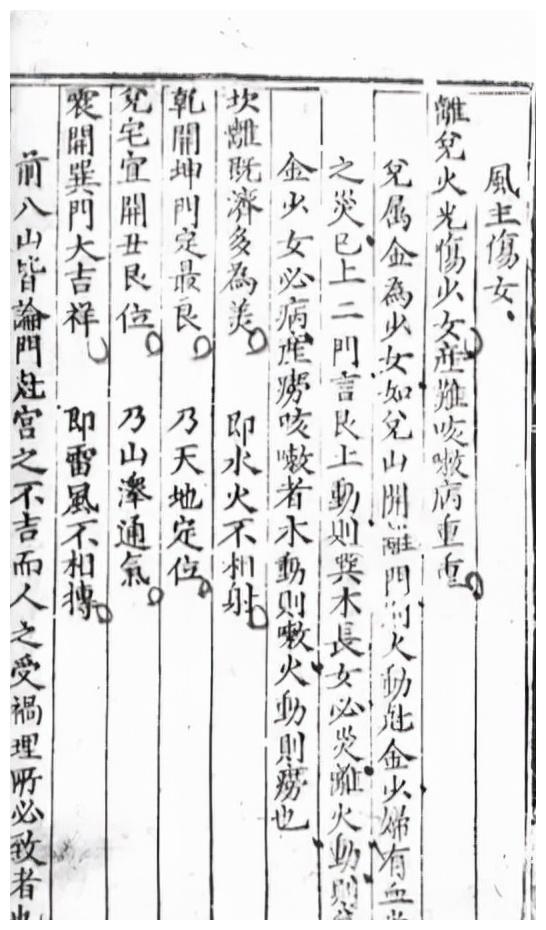 風主傷女、
離兌火光傷少女產難咳嗽病重重
兌属金為少女如兌山開離門則火動尅金少婦有血
之災已上二門言艮上動則巽木長女必災離火動則
金少女必病產癆咳嗽者水動則嗽火動則癆也
坎離既濟多為美　即水火不相射
乾開坤門定最良　乃天地定位
兌宅宜開丑艮位　乃山澤通氣
震開巽門大吉祥　即雷風不相摶
前八山皆論門尅宮之不吉而人之受禍理所必致者也